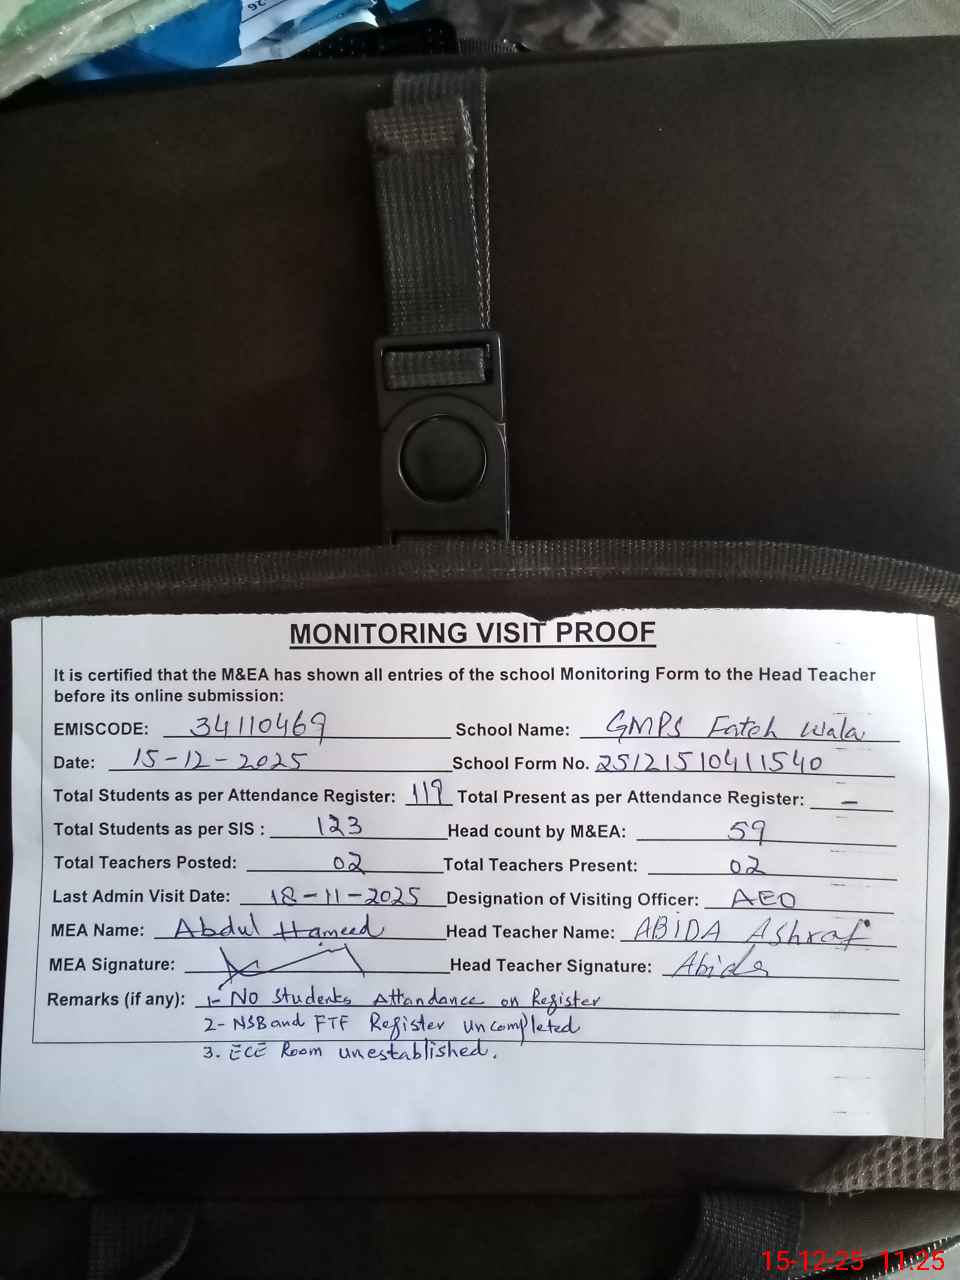 MONITORING VISIT PROOF
It is certified that the M&EA has shown all entries of the school Monitoring Form to the Head Teacher
before its online submission:
EMISCODE: 34110469 School Name: GMPS Fateh Wala
Date: 15-12-2025 School Form No. 25121510411540
Total Students as per Attendance Register: 119 Total Present as per Attendance Register: -
Total Students as per SIS : 123 Head count by M&EA: 59
Total Teachers Posted: 02 Total Teachers Present: 02
Last Admin Visit Date: 18-11-2025 Designation of Visiting Officer: AEO
MEA Name: Abdul Hameed Head Teacher Name: ABIDA Ashraf
MEA Signature: Head Teacher Signature: Abida
Remarks (if any): 1- No Students Attandance on Register
2- NSB and FTF Register uncompleted
3. ECE Room unestablished.
15-12-25 11:25